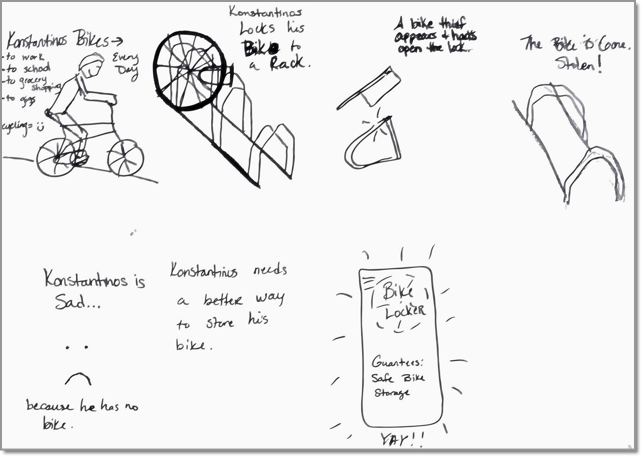 Konstantinos Bikes →
- to work
- to school
- to grocery
shopping
- to
Every
Day
cycling = :)
Konstantinos
Locks his
Bike to
a Rack.
A bike thief
appears & hacks
open the lock.
The Bike is Gone.
Stolen!
Konstantinos is
Sad...
because he has no
bike.
Konstantinus needs
a better way
to store his
bike.
Bike
LockR
Guantees:
Safe Bike
Storage
YAY!!